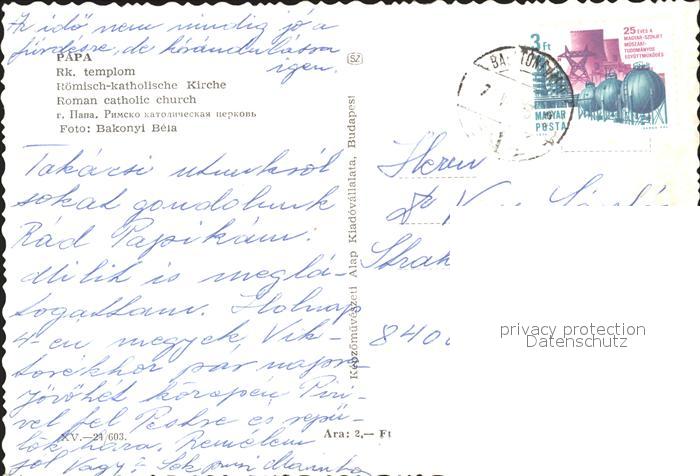 Az idő nem mindig jó a
fürdésre, de kirándulásra
igen.
PÁPA
Rk. templom
Römisch-katholische Kirche
Roman catholic church
г. Папа, Римско католическая церковь
Foto: Bakonyi Béla
Takácsi utunkról
sokat gondolunk
Rád Papikám!
is meglá-
togattam. Holnap
4-en megyek, Vik-
torékhoz pár napra
Jövőhét közepén Piri-
vel fel Pestre és repü-
lök haza. Remélem
jól vagy? Sok puszi
XV.—21/603.
Ára: 2,— Ft
Képzőművészeti Alap Kiadóvállalata, Budapest
SZ
3 Ft
25 ÉVES A
MAGYAR-SZOVJET
MŰSZAKI-
TUDOMÁNYOS
EGYÜTTMŰKÖDÉS
MAGYAR
POSTA
Herrn
Dr
840
privacy protection
Datenschutz